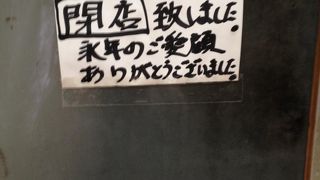 閉店 致しました。
永年のご愛顧
ありがとうございました。